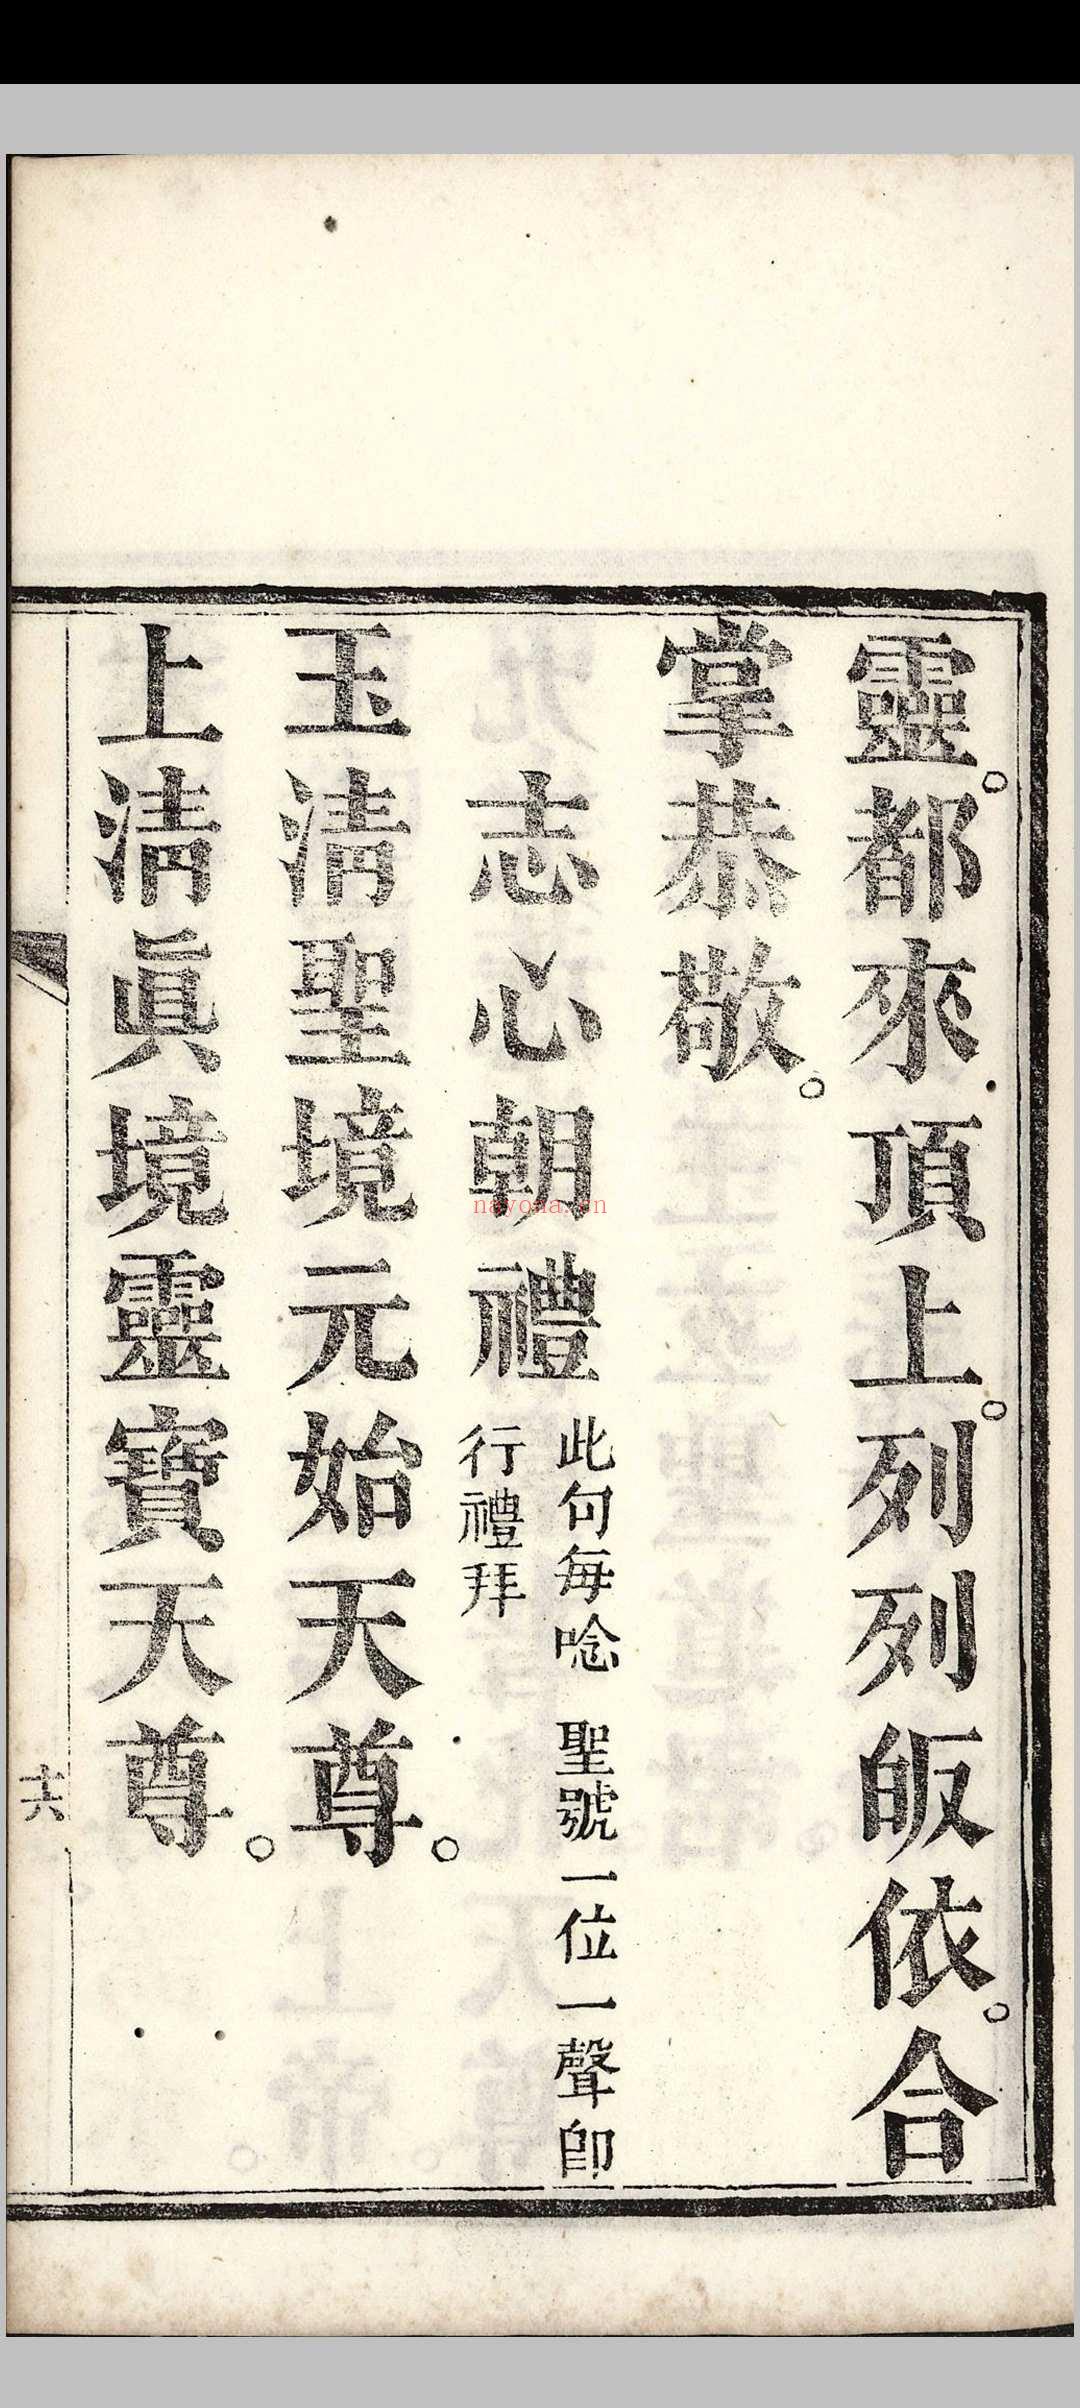 靈。都來頂上。列列皈依。合
掌恭敬。
志心朝禮
此句每唸 聖號一位一聲即
行禮拜
玉清聖境元始天尊。
上清眞境靈寶天尊。
十六
nayona.cn